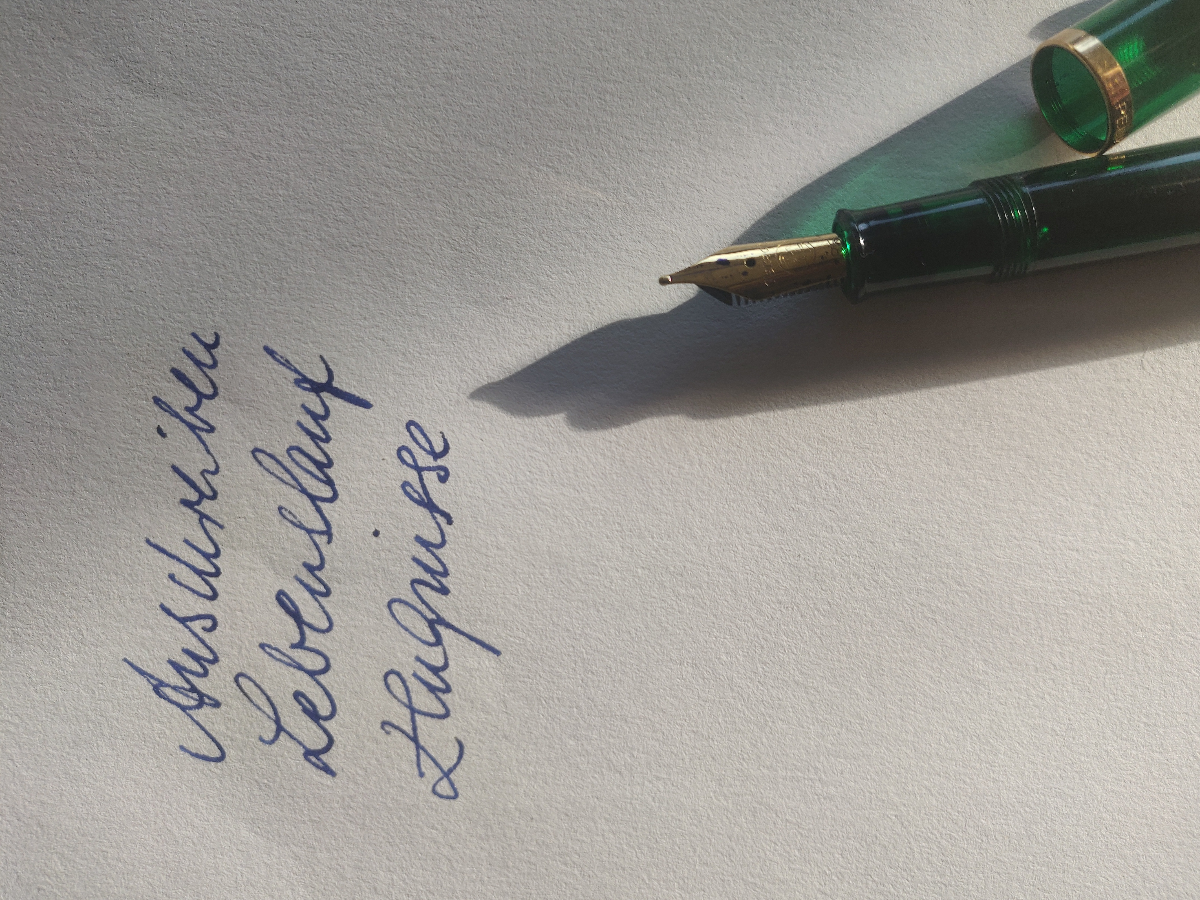 Anschreiben
Lebenslauf
Zeugnisse